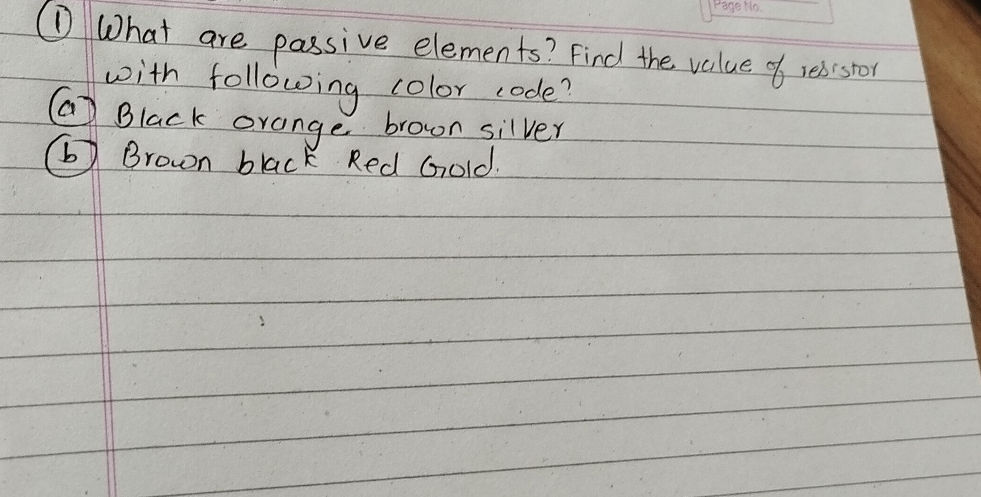 Page No.
① What are passive elements? Find the value of resistor
with following color code?
ⓐ Black orange brown silver
ⓑ Brown black Red Gold.